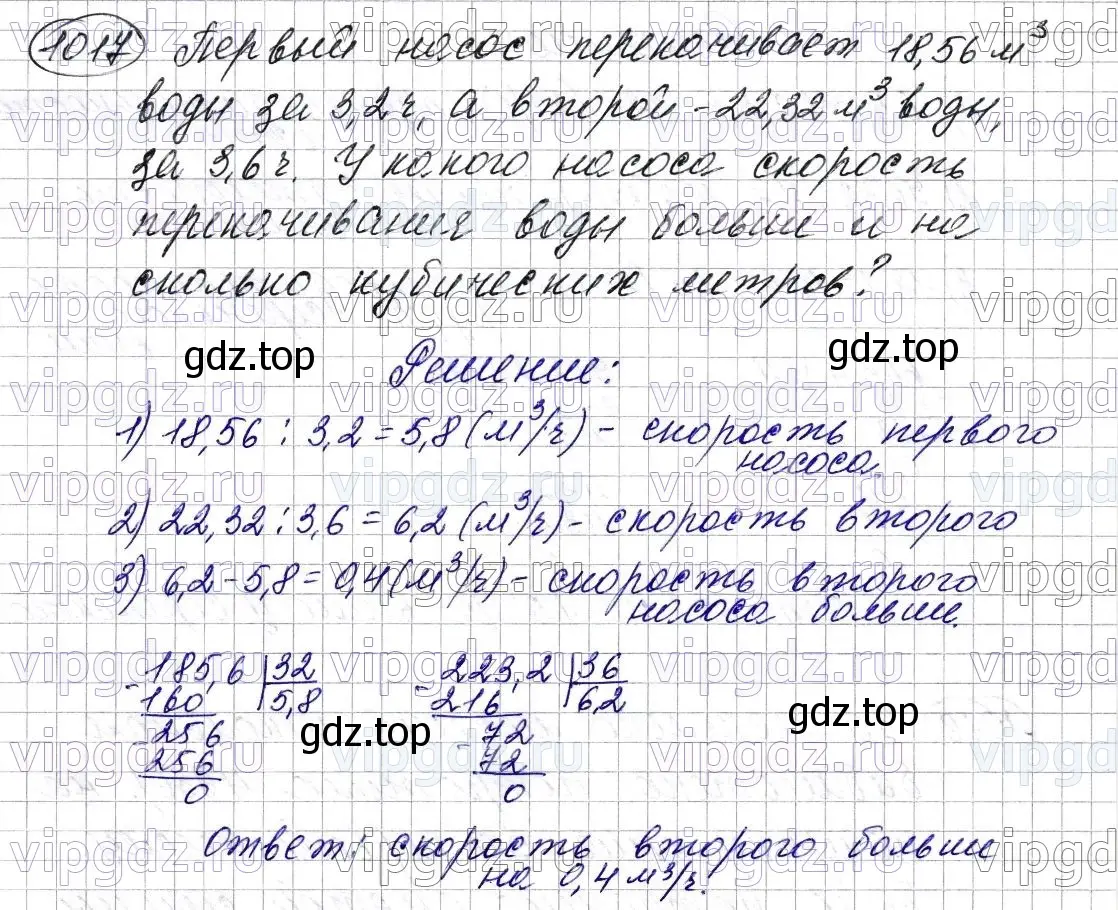 1017 Первый насос перекачивает 18,56 м³
воды за 3,2 ч, а второй - 22,32 м³ воды,
за 3,6 ч. У какого насоса скорость
перекачивания воды больше и на
сколько кубических метров?
gdz.top
gdz.top
Решение:
1) 18,56 : 3,2 = 5,8 (м³/ч) - скорость первого
насоса
2) 22,32 : 3,6 = 6,2 (м³/ч) - скорость второго
3) 6,2 - 5,8 = 0,4 (м³/ч) - скорость второго
насоса больше.
- 185,6 | 32 - 223,2 | 36
160 5,8 216 6,2
- 256 - 72
256 72
0 0
gdz.top
gdz.top
Ответ: скорость второго больше
на 0,4 м³/ч.
vipgdz.ru